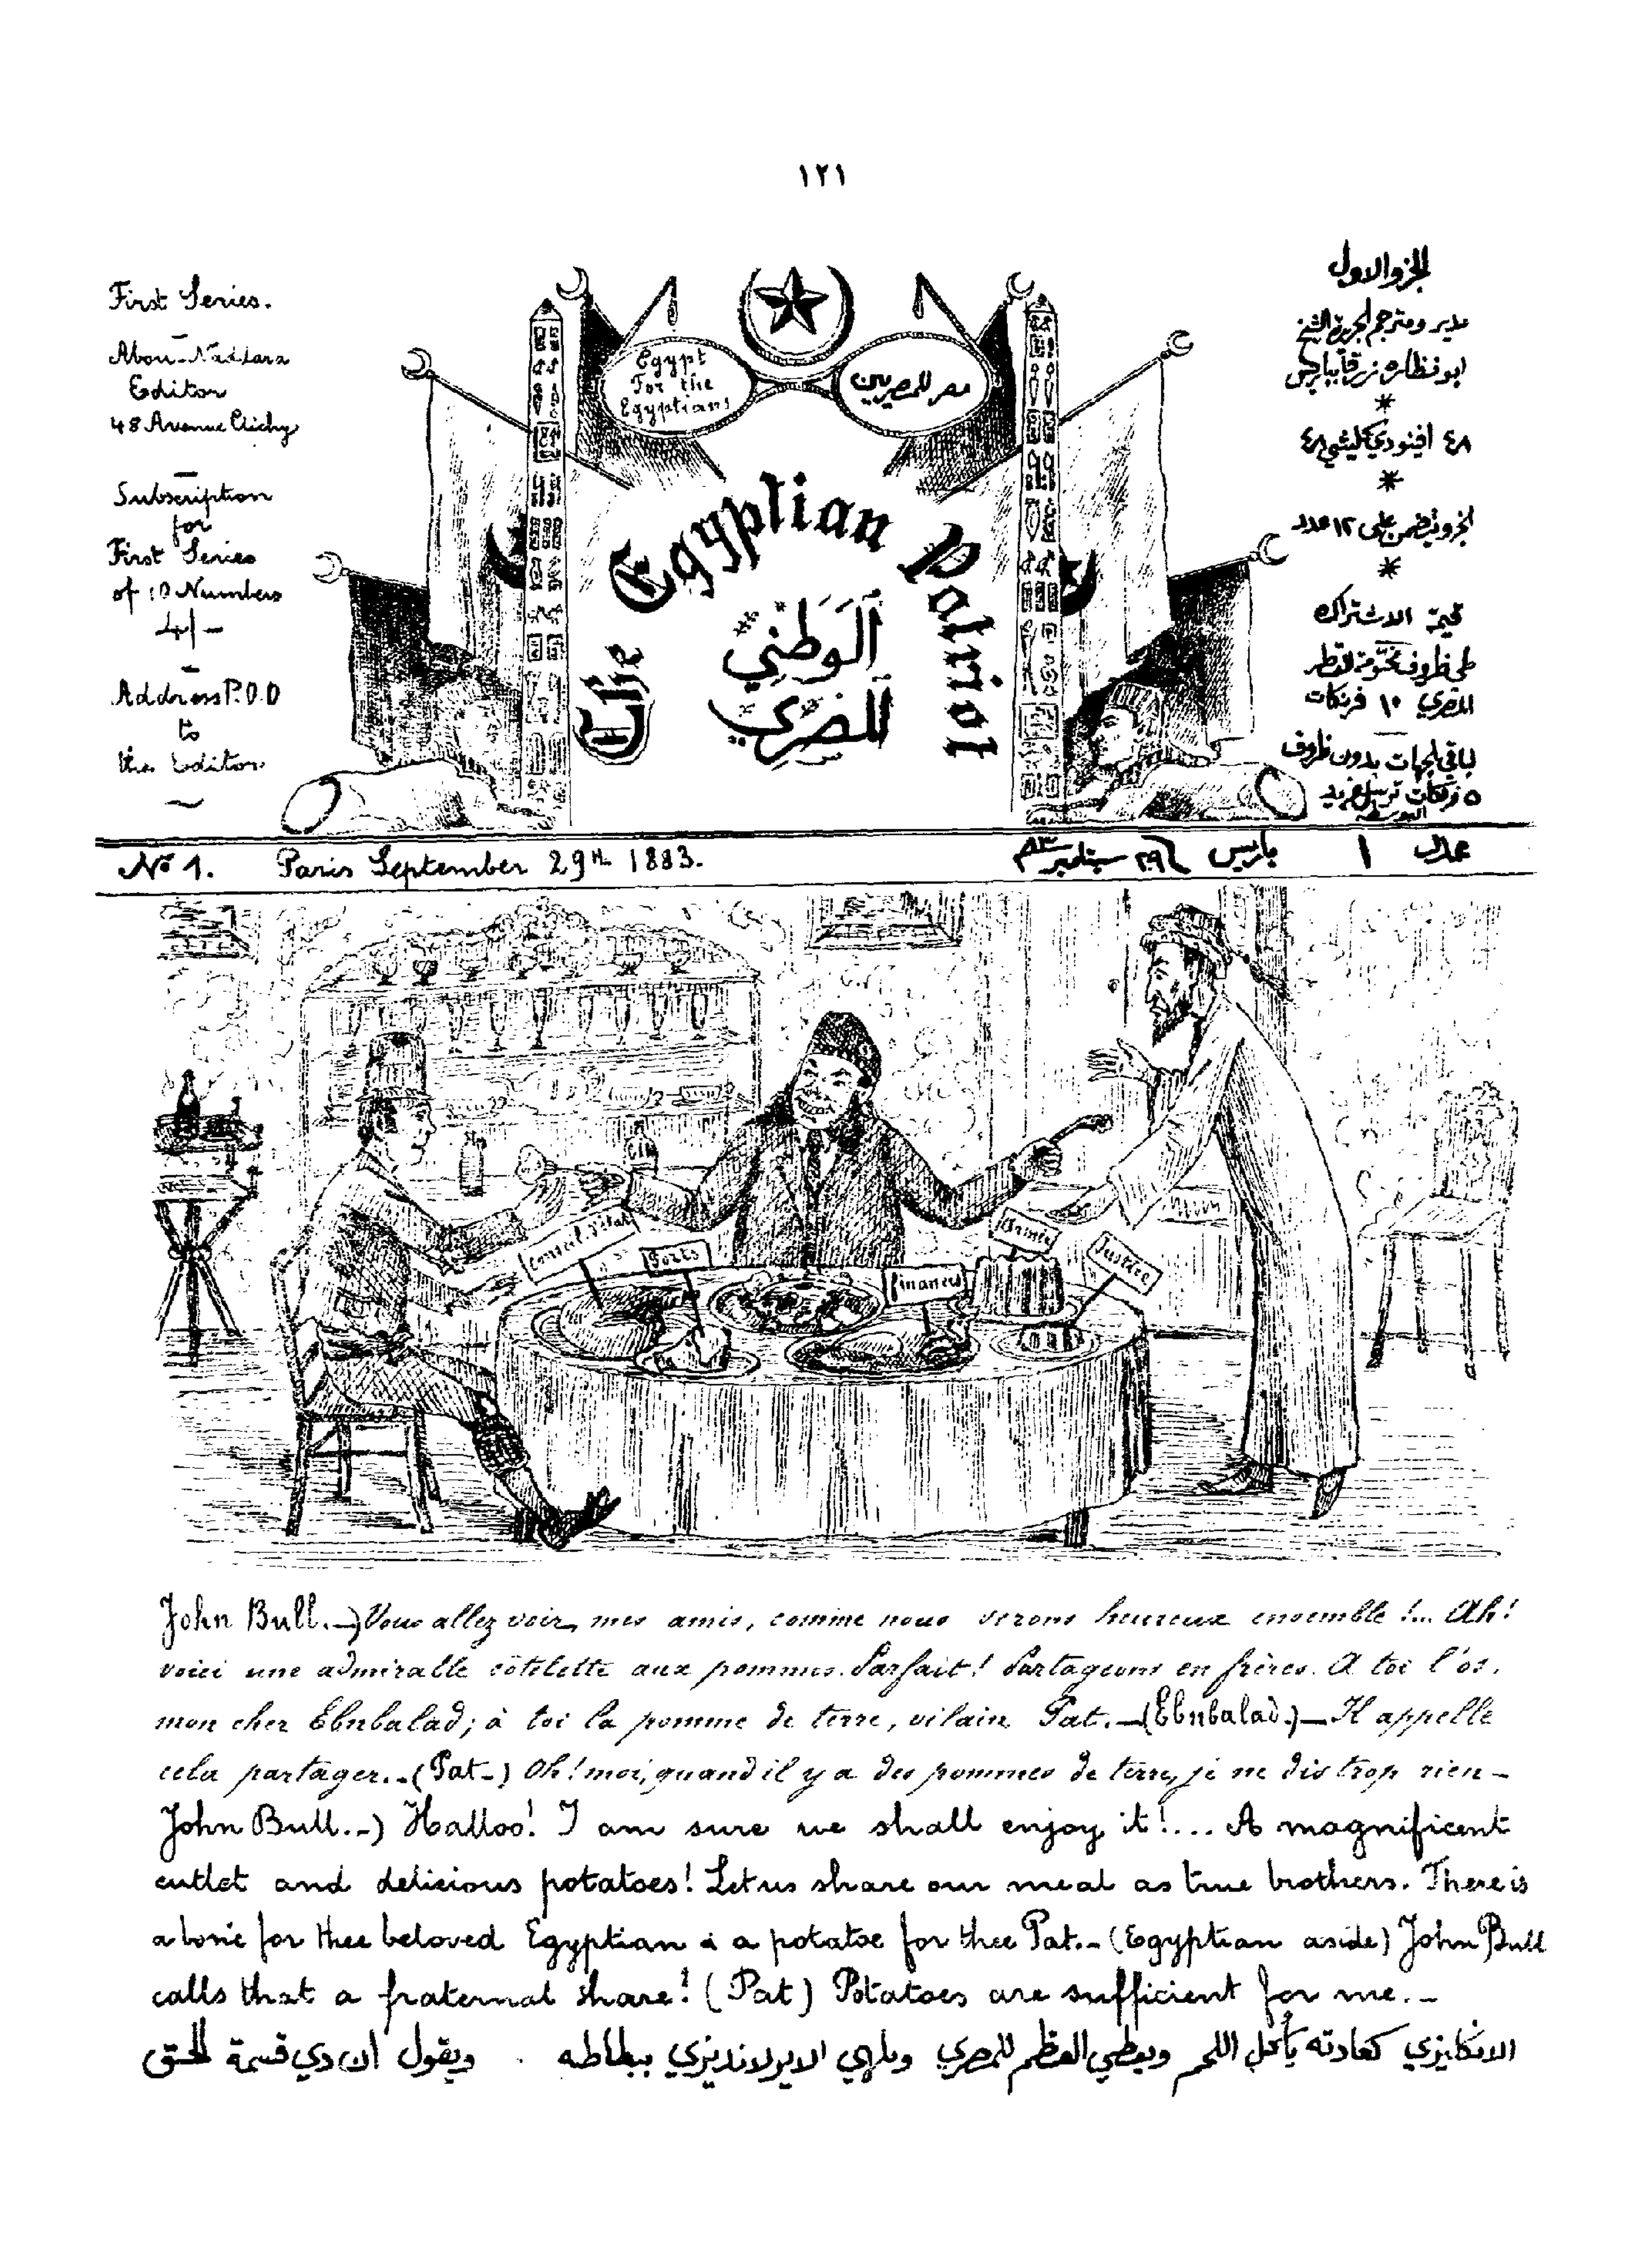 ١٢١
First Series.
Abou-Naddara
Editor
48 Avenue Clichy
Subscription
for
First Series
of 10 Numbers
4/-
Address P.O.O
to
the Editor
Egypt
For the
Egyptians
مصر للمصريين
The Egyptian Patriot
اَلوَطَنِي
المِصْرِي
الجزو الاول
مدير ومترجم الجريدة الشيخ
ابو نظاره زرقا بباريس
٤٨ افنودي كليشي ٤٨
الجزو يتضمن على ١٢ عدد
قيمة الاشتراك
طي ظروف مختومة للقطر
المصري ١٠ فرنكات
لباقي الجهات بدون ظروف
٥ فرنكات ترسل في
البوسطه
No 1. Paris September 29th 1883.
عدد ١ باريس ٢٩ سبتمبر ٨٣
Conseil d'Etat
Ports
Finances
Armée
Justice
John Bull.-) Vous allez voir, mes amis, comme nous serons heureux ensemble!... Ah!
voici une admirable côtelette aux pommes. Parfait! Partageons en frères. A toi l'os,
mon cher Ebnbalad; à toi la pomme de terre, vilain Pat.-(Ebnbalad.)- Il appelle
cela partager..-(Pat-) Oh! moi, quand il y a des pommes de terre, je ne dis trop rien-
John Bull.-) Halloo! I am sure we shall enjoy it!... A magnificent
cutlet and delicious potatoes! Let us share our meal as true brothers. There is
a bone for thee beloved Egyptian & a potatoe for thee Pat.-(Egyptian aside) John Bull
calls that a fraternal share! (Pat) Potatoes are sufficient for me.-
الانكليزي كعادته يأكل اللحم ويعطي العظم للمصري ويلهي الايرلانديزي ببطاطه . ويقول ان دي قسمة الحق